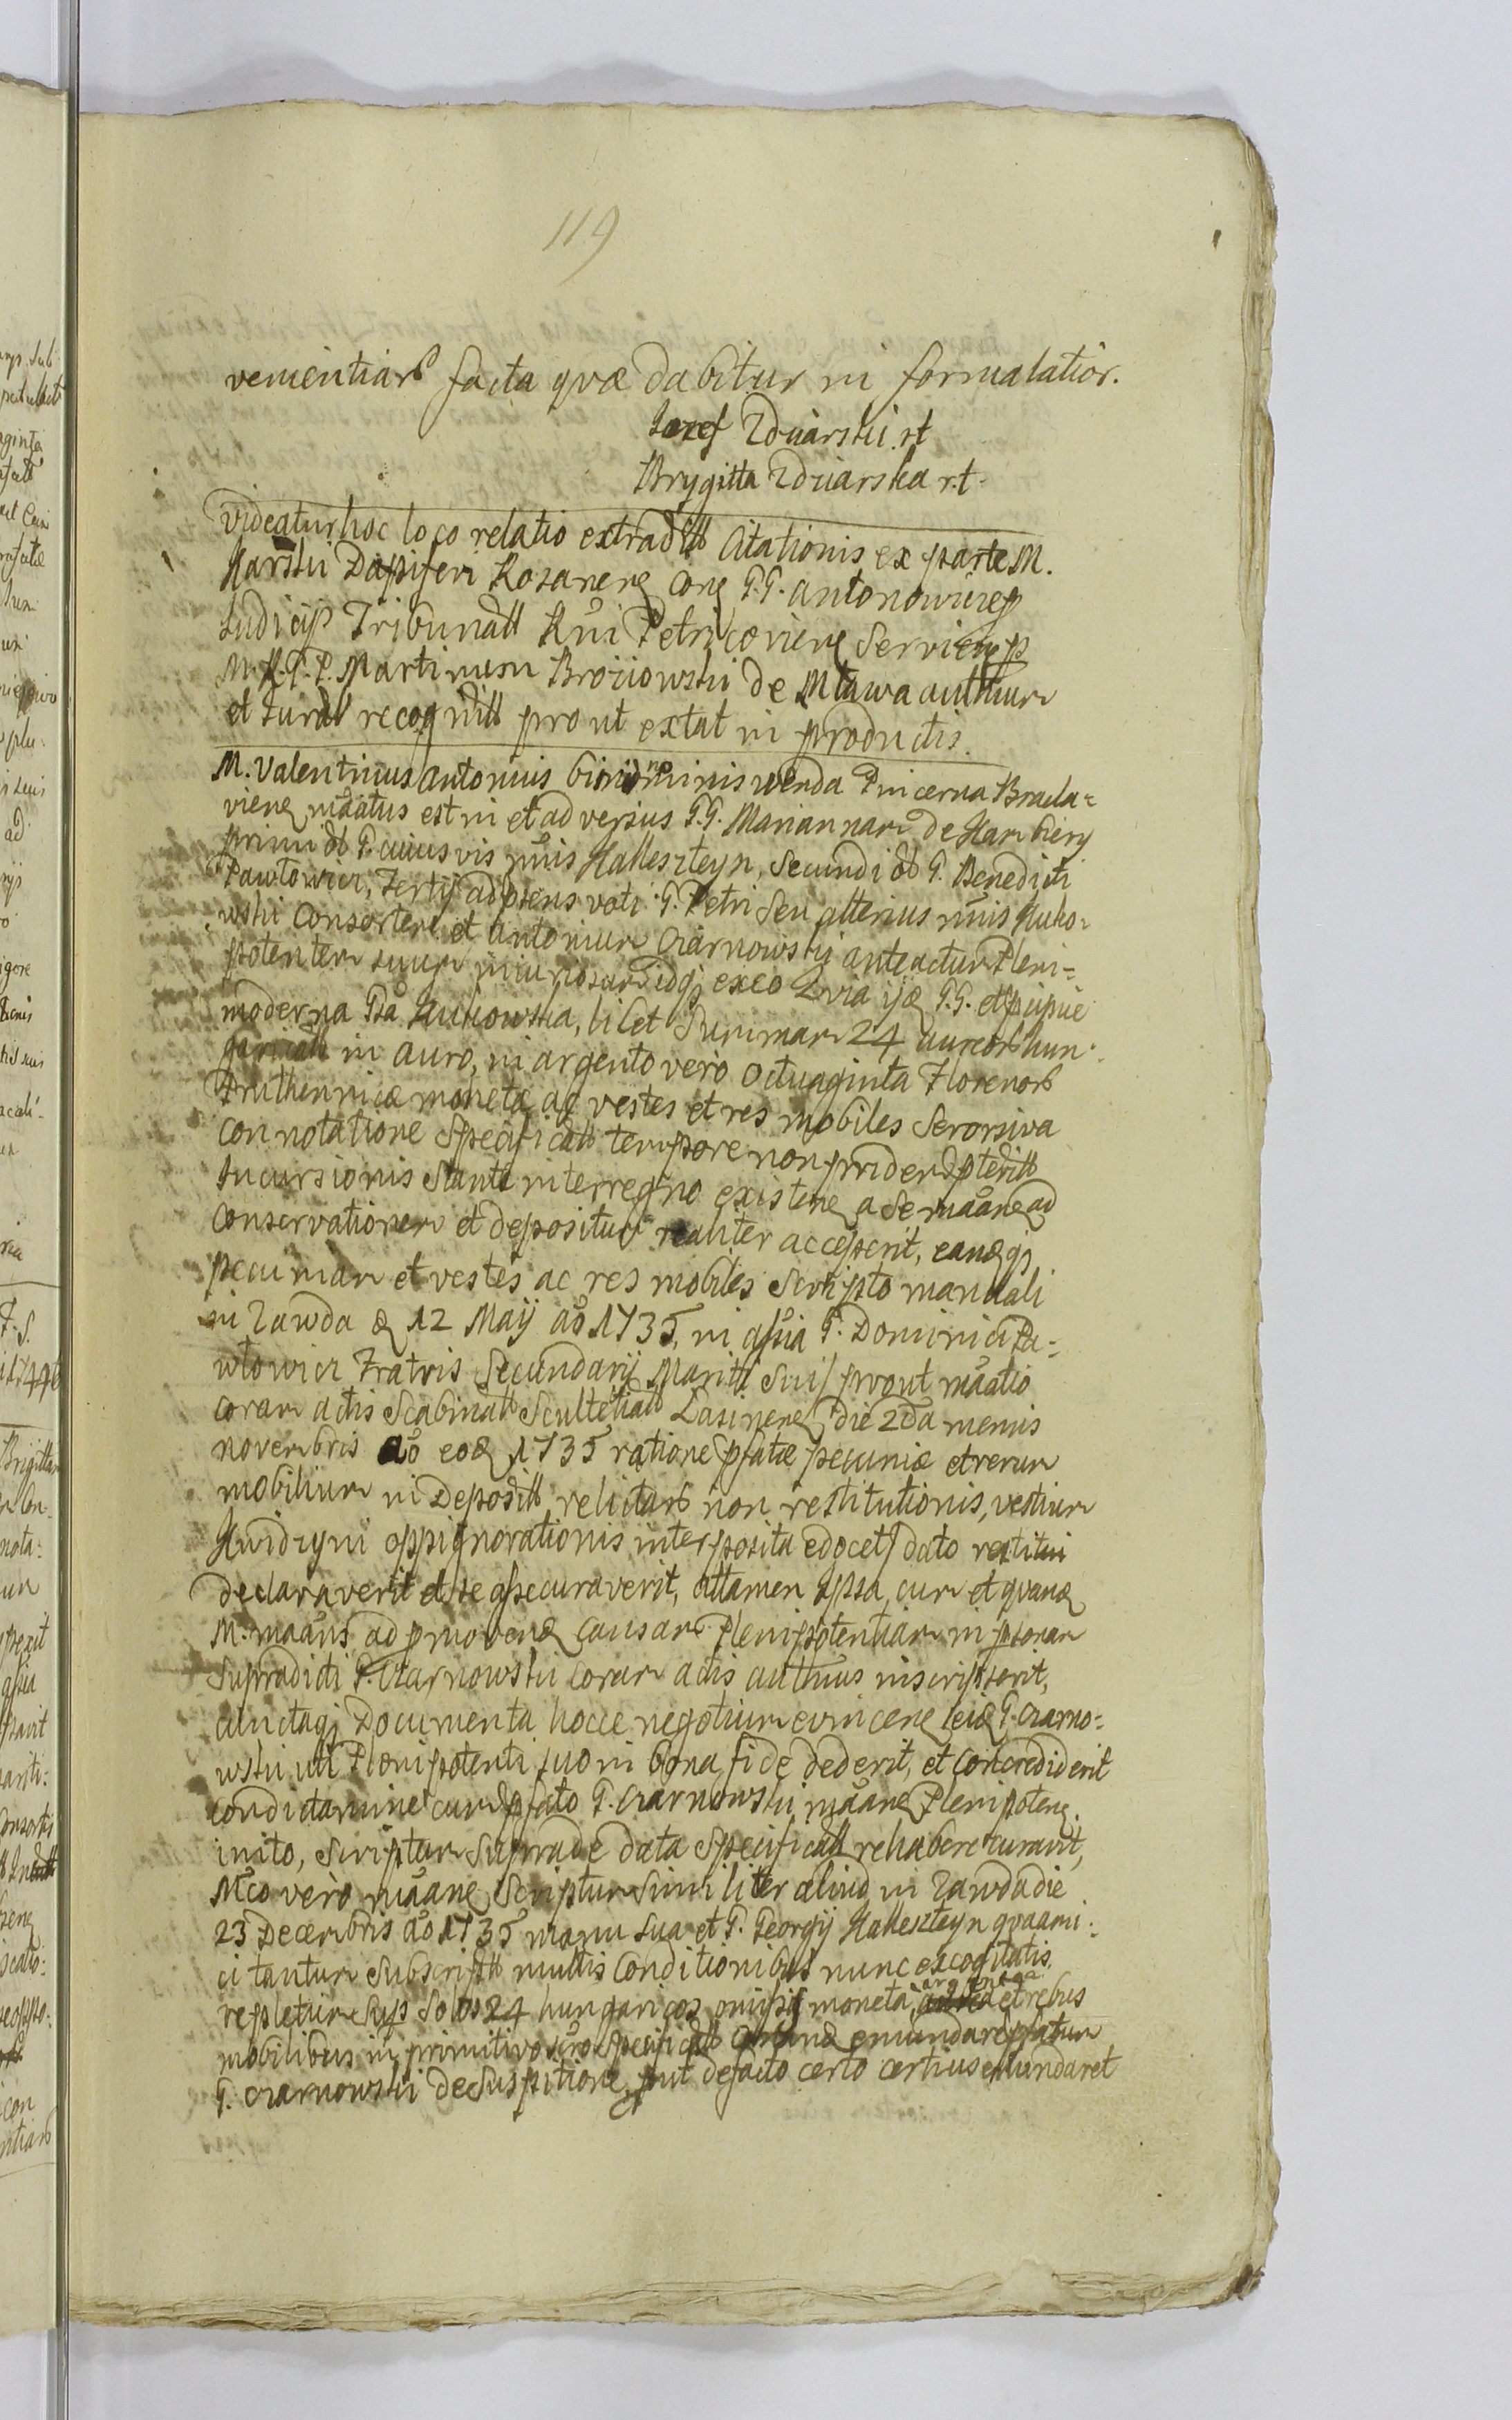 119
venientiarb facta quæ dabitur in formalatior.
Jozef Zdziarski rt
Brygitta Zdziarska r.t.
videatur hoc loco relatio extraditt Citationis ex parte M.
Karski Dapiferi Rosanen Con G.G. antonowicz
Judicijs Tribunatt Rni Petricovien Servien
M. R. G. P. Martinum Broziowski de Mława authum
et Jurat recognitt prout extat in productis.
M. Valentinus Antonius binominis wenda Pincerna Bracla=
vien mãatus est in et adversus G.G. Mariannam de Hamberg
primi dt G. cuiusvis nuis Halleszteyn, Secundi dt G. Benedicti
Pawłowicz, Tertij adprens voti G. Petri Seu alterius nuis Huko=
wski Consortem et Antonium Czarnowski anteactum Pleni=
potentem suum iniuriosum idqz exeo Qvia ijd G.G. et
moderna Hukowska, licet Summam 24 aureorb hun=
garicalt in auro, in argento vero octuaginta Florenorb
Pruthennicæ moneta ac vestes et res mobiles Serorsiva
connotatione Specificatt tempore non pridem
Incursionis Stante interregno existen a Se mãane ad
conservationem et depositum realiter acceperit, eandqz
pecuniam et vestes ac res mobiles Scripto manuali
in Zawda d 12 Maij aõ 1735, in assia G. Dominici Pa=
włowicz Fratris Secundarij Mariti Sui/ prout mãatio
coram actis Scabinatt Scultetiatt Lasinen die 2da mensis
novembris aõ eod 1735 ratione pfatæ pecuniæ et rerum
mobilium in Depositt relictarb non restitutionis, vestium
Kwidzyni oppignorationis interposita edocet/ dato restitui
declaraverit et se assecuraverit, attamen ipsa, cum et quand
M. mãans ad pmovend Causam Plenipotentiam in psonam
Supradicti G. Czarnowski coram actis authnus inscripserit,
cunctaqz Documenta hocce negotium evincen eid G. Czarno=
wski uti Plenipotenti suo in bona fide dederit, et Concrediderit
condictamine cum pfato G. Czarnowski mãane Plenipoten
inito, Scriptum Suprade data Specificatt rehabere curavit,
Mco vero mãane Scriptum Similiter aliud in Zawda die
23 Decembris aõ 1735 manu Sua et G. Georgij Halleszteyn qua ami=
ci tantum Subscriptt multis Conditionibus nunc excogitatis
repletum Sup Solos 24 hungaricos omissis moneta, argentea et rebus
mobilibus in primitivo Scro Specificatt
G. Czarnowski de Suspitione, put defacto certo certius emundaret